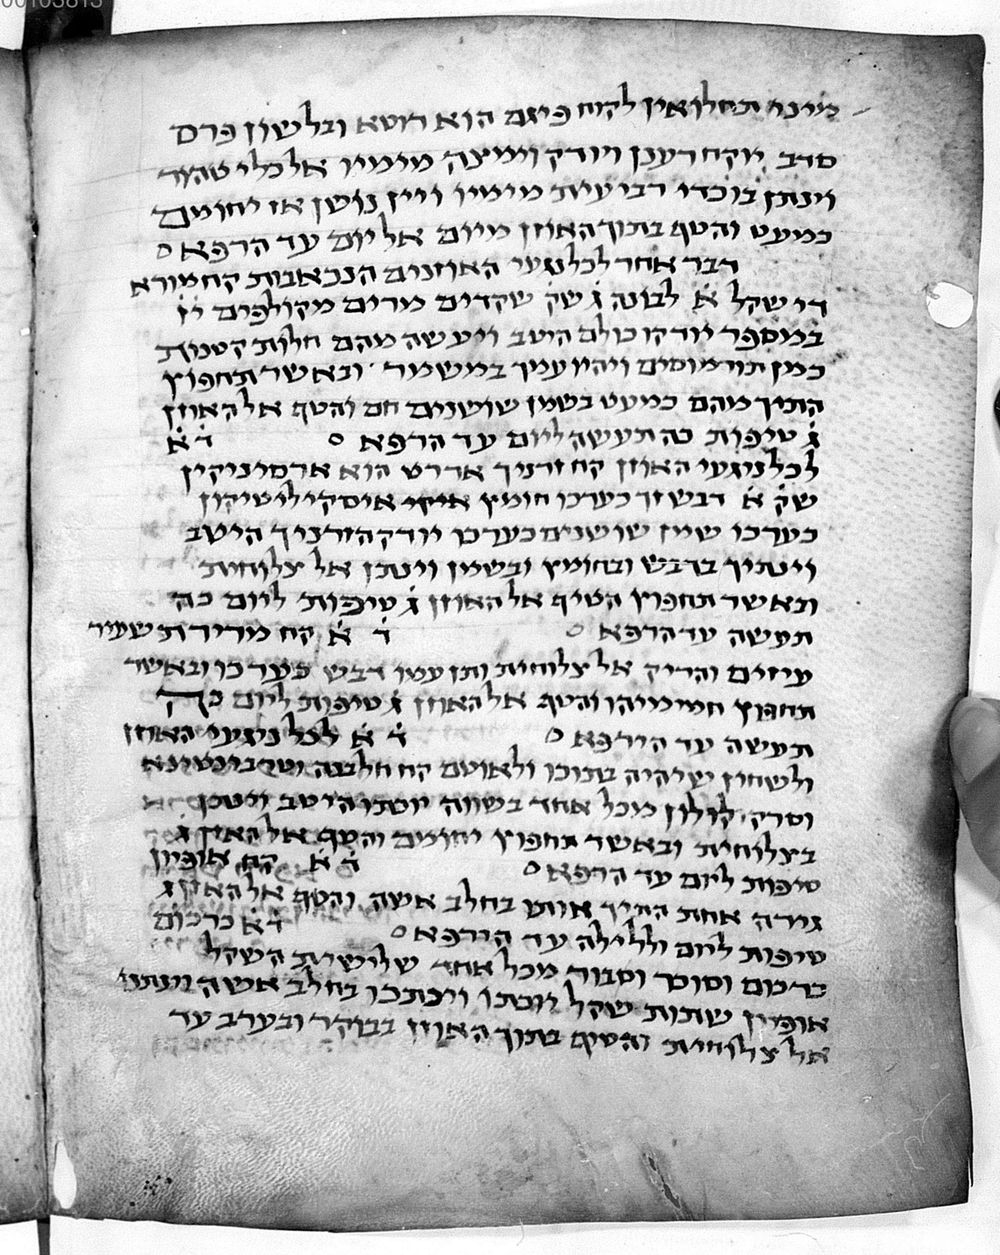 מיני תחלואין לקוח פיגם הוא רוטא ובלשון פרס
סדב יוקח רענן ויודק וימצה מימיו אל כלי טהור
וינתן בוכדי רביעית מימיו ויין נושן אז יחומם
כמעט והטף בתוך האוזן מיום אל יום עד הרפא
דבר אחר לכל נגעי האוזנים הנכאבות קח מורא
די שקל א לבונה ג שק שקדים מרים מקולפים יו
במספר יודקו כולם היטב ויעשה מהם חלות קטנות
כמן תורמוסים ויהיו עמך במשמר ובאשר תחפוץ
התיך מהם כמעט בשמן שושנים חם והטף אל האוזן
ג טיפות כה תעשה ליום עד הרפא ד א
לכל ניגעי האוזן קח זרניך אדרט הוא ארסיניקין
שק א דבש זך כערכו חומץ איסקיליטיקון
כערכו שמן שושנים כערכו יודק הזרניך היטב
וינתיך בדבש ובחומץ ובשמן וינתן אל צלוחית
ובאשר תחפוץ הטיף אל האוזן ג טיפות ליום כה
תעשה עד הרפא ד א קח מרירת שעיר
עיזים והריק אל צלוחית ותן עמו דבש כערכו ובאשר
תחפוץ חמימיהו והטף אל האוזן ג טיפות ליום כה
תעשה עד הירפא ד א לכל ניגעי האוזן
ולשחין שיהיה בתוכו ולאוטם קח חלבנה וטרבינטינא
וסרק קולון מכל אחד בשווה יותכו היטב וינתן
בצלוחית ובאשר תחפוץ יחומם והטף אל האוזן ג
טיפות ליום עד הרפא ד א קח אופיון
גירה אחת התיך אותו בחלב אשה והטף אל האוזן ג
טיפות ליום וללילה עד הירפא ד א כרכום
כרכום וסוכר וסבור מכל אחד שלישית השקל
אופיון שתות שקל יותכו ויכתכו בחלב אשה וינתנו
אל צלוחית והטיף בתוך האוזן בבוקר ובערב עד